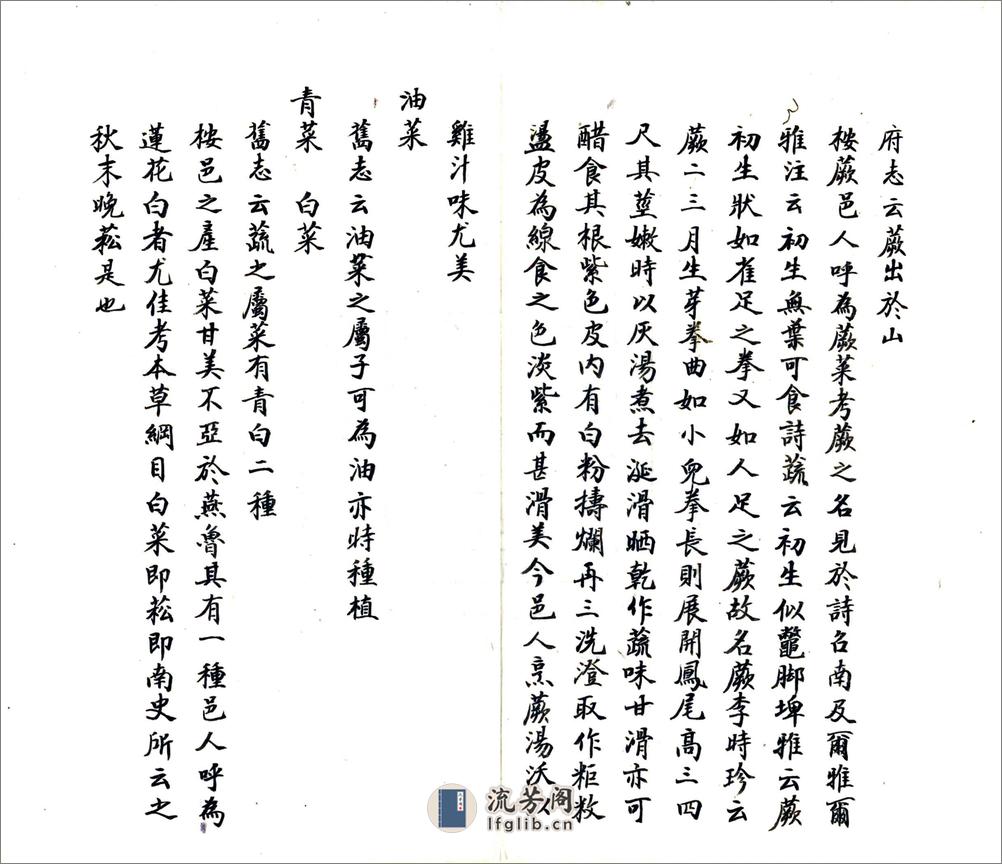 府志云蕨出於山
桉蕨邑人呼為蕨菜考蕨之名見於詩召南及爾雅爾
雅注云初生無葉可食詩蔬云初生似鼈脚埤雅云蕨
初生狀如雀足之拳又如人足之蕨故名蕨李時珍云
蕨二三月生芽拳曲如小兒拳長則展開鳳尾高三四
尺其莖嫩時以灰湯煮去涎滑晒乾作蔬味甘滑亦可
醋食其根紫色皮內有白粉擣爛再三洗澄取作粔籹
盪皮為線食之色淡紫而甚滑美今邑人烹蕨湯沃以
雞汁味尤美
油菜
舊志云油菜之屬子可為油亦時種植
青菜 白菜
舊志云蔬之屬菜有青白二種
桉邑之產白菜甘美不亞於燕魯其有一種邑人呼為
蓮花白者尤佳考本草綱目白菜即菘即南史所云之
秋末晚菘是也
流芳阁
lfglib.cn